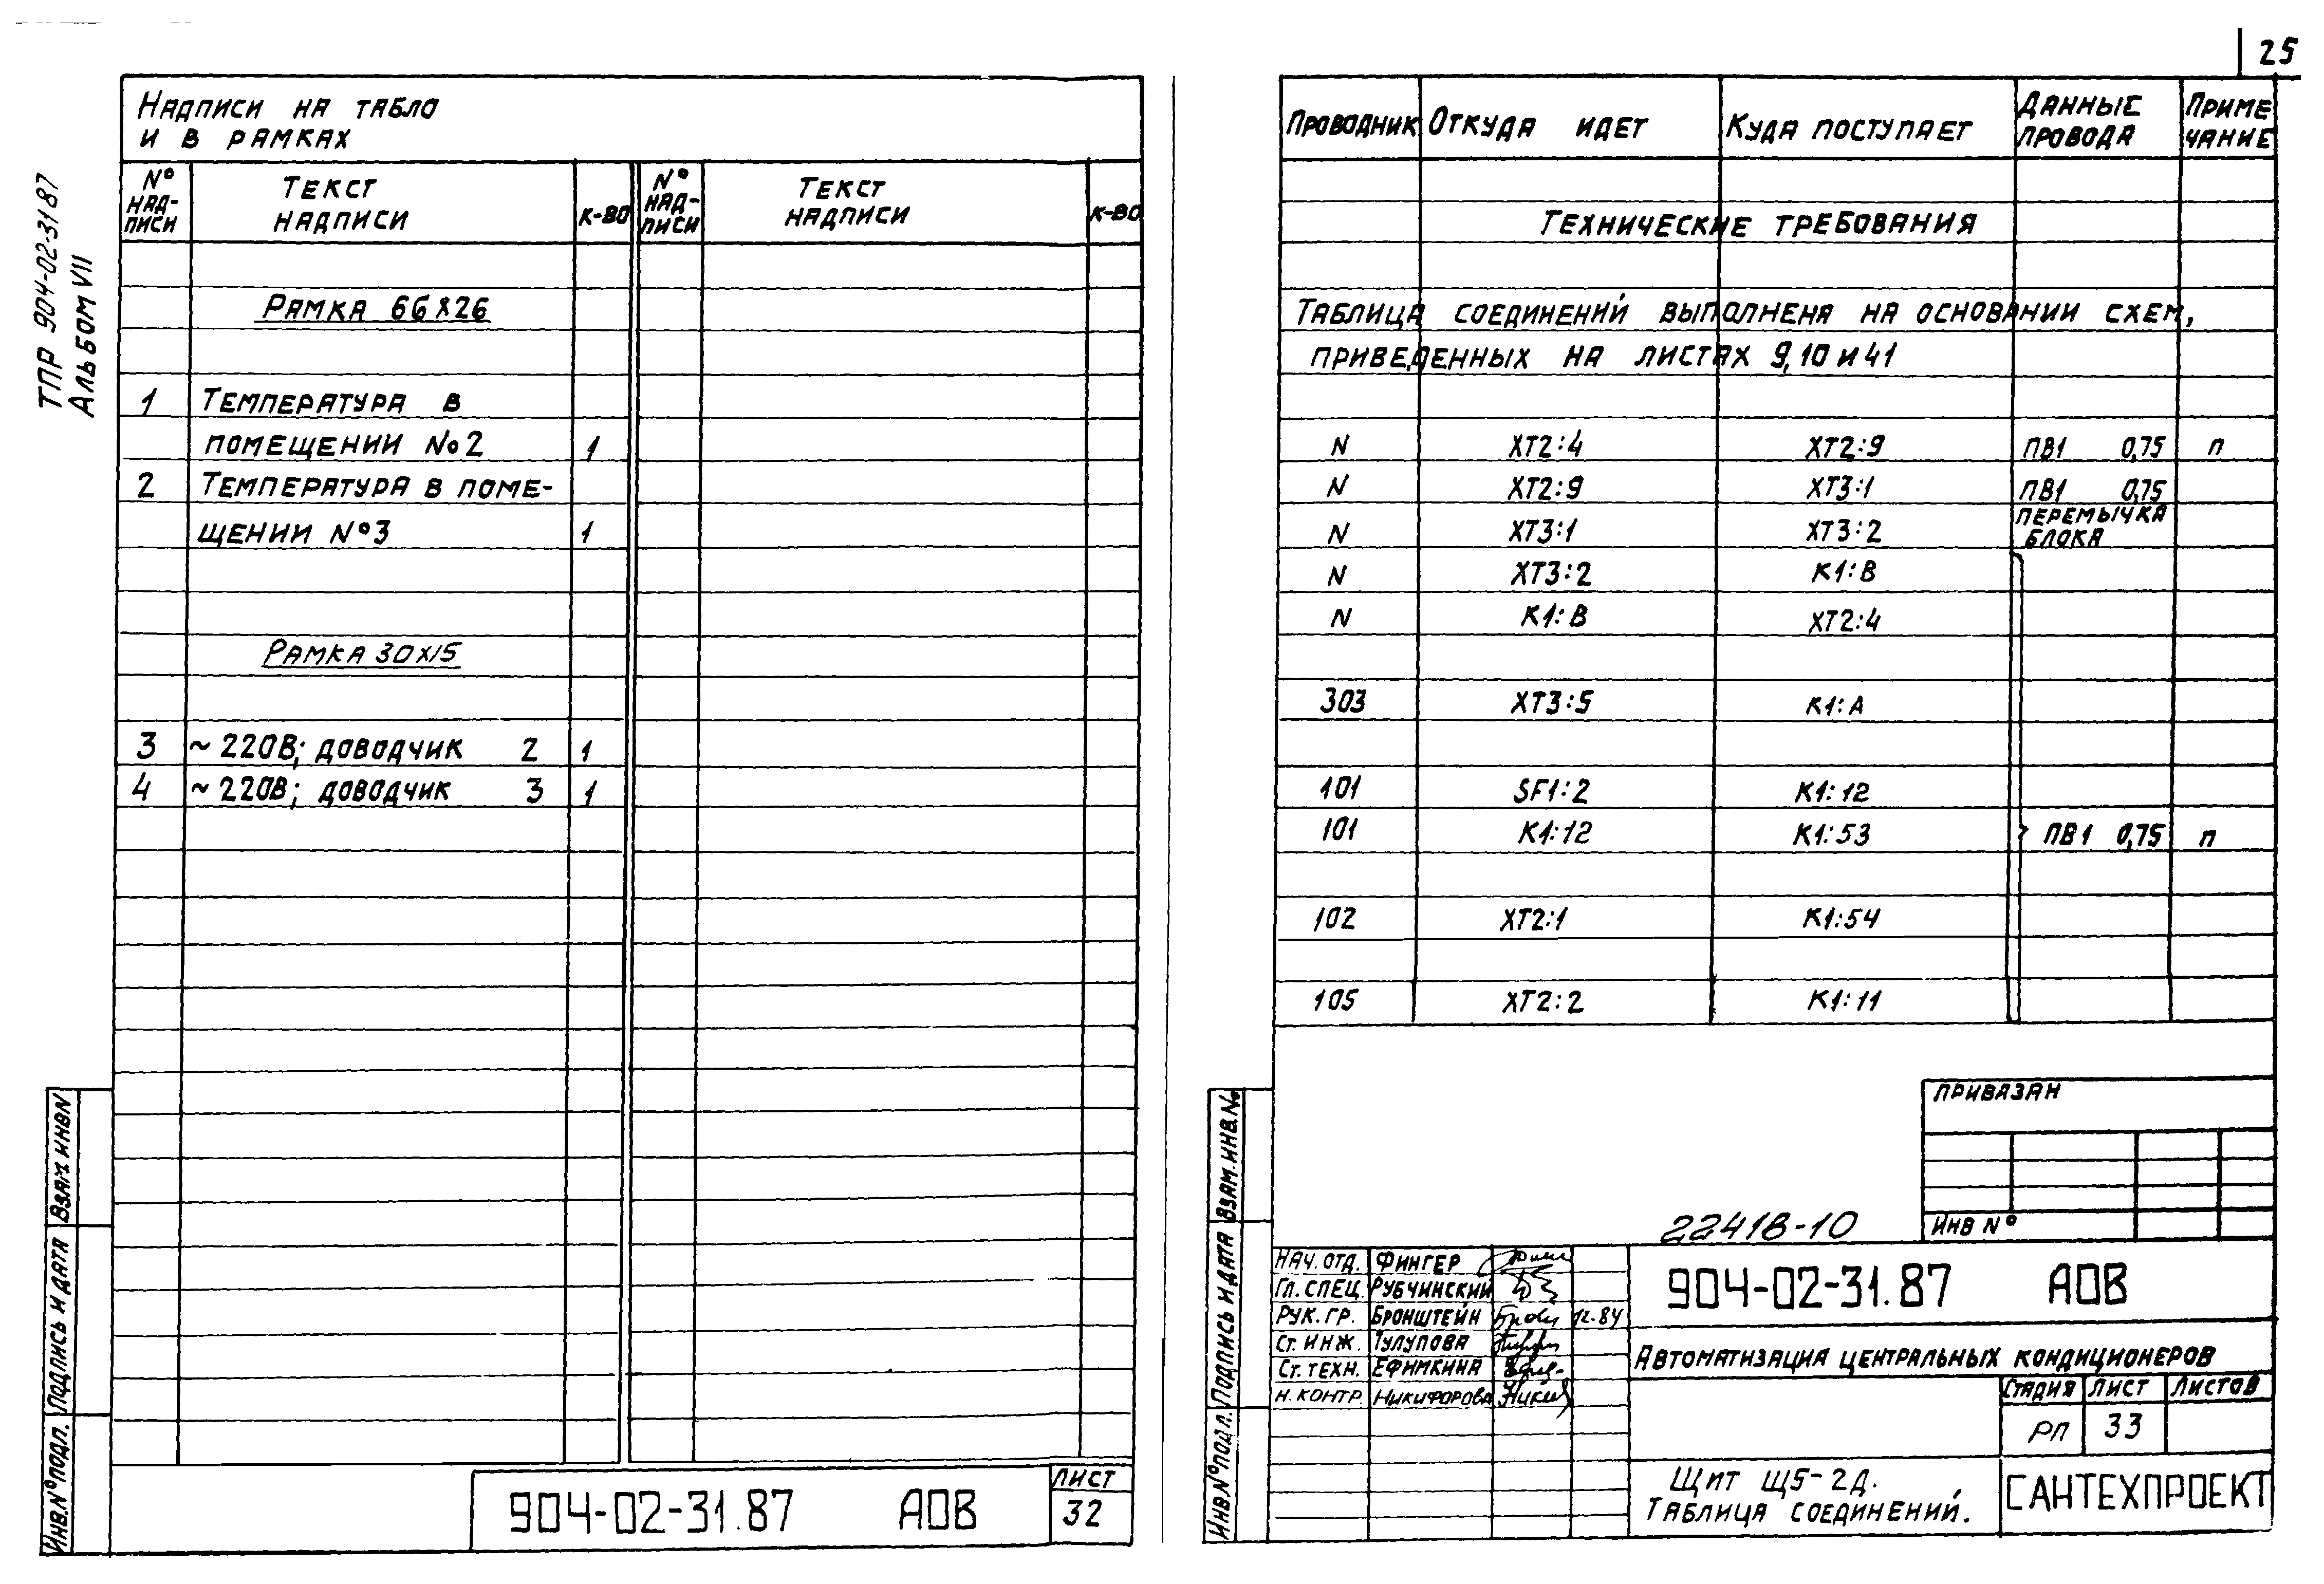 25
ТПР 904-02-31 87
Альбом VII
Надписи на табло
и в рамках
№ надписи Текст надписи к-во № надписи Текст надписи к-во
Рамка 66х26
1 Температура в
помещении №2 1
2 Температура в поме-
щении №3 1
Рамка 30х15
3 ~220В; доводчик 2 1
4 ~220В; доводчик 3 1
Взам инв N
Подпись и дата
Инв.№ подл.
904-02-31.87 АОВ
Лист
32
Проводник Откуда идет Куда поступает Данные провода Примечание
Технические требования
Таблица соединений выполнена на основании схем,
приведенных на листах 9, 10 и 41
N XT2:4 XT2:9 ПВ1 0,75 п
N XT2:9 XT3:1 ПВ1 0,75
N XT3:1 XT3:2 перемычка блока
N XT3:2 K1:В
N K1:В XT2:4
303 XT3:5 K1:А
101 SF1:2 K1:12
101 K1:12 K1:53 ПВ1 0,75 п
102 XT2:1 K1:54
105 XT2:2 K1:11
Привязан
Инв №
22418-10
Взам. инв.№
Подпись и дата
Инв.№ подл.
Нач. отд. Фингер
Гл. спец. Рубчинский
Рук. гр. Бронштейн 12.84
Ст. инж. Тулупова
Ст. техн. Ефимкина
Н. контр. Никифорова
904-02-31.87 АОВ
Автоматизация центральных кондиционеров
Стадия Лист Листов
РП 33
Щит Щ5-2Д.
Таблица соединений.
САНТЕХПРОЕКТ